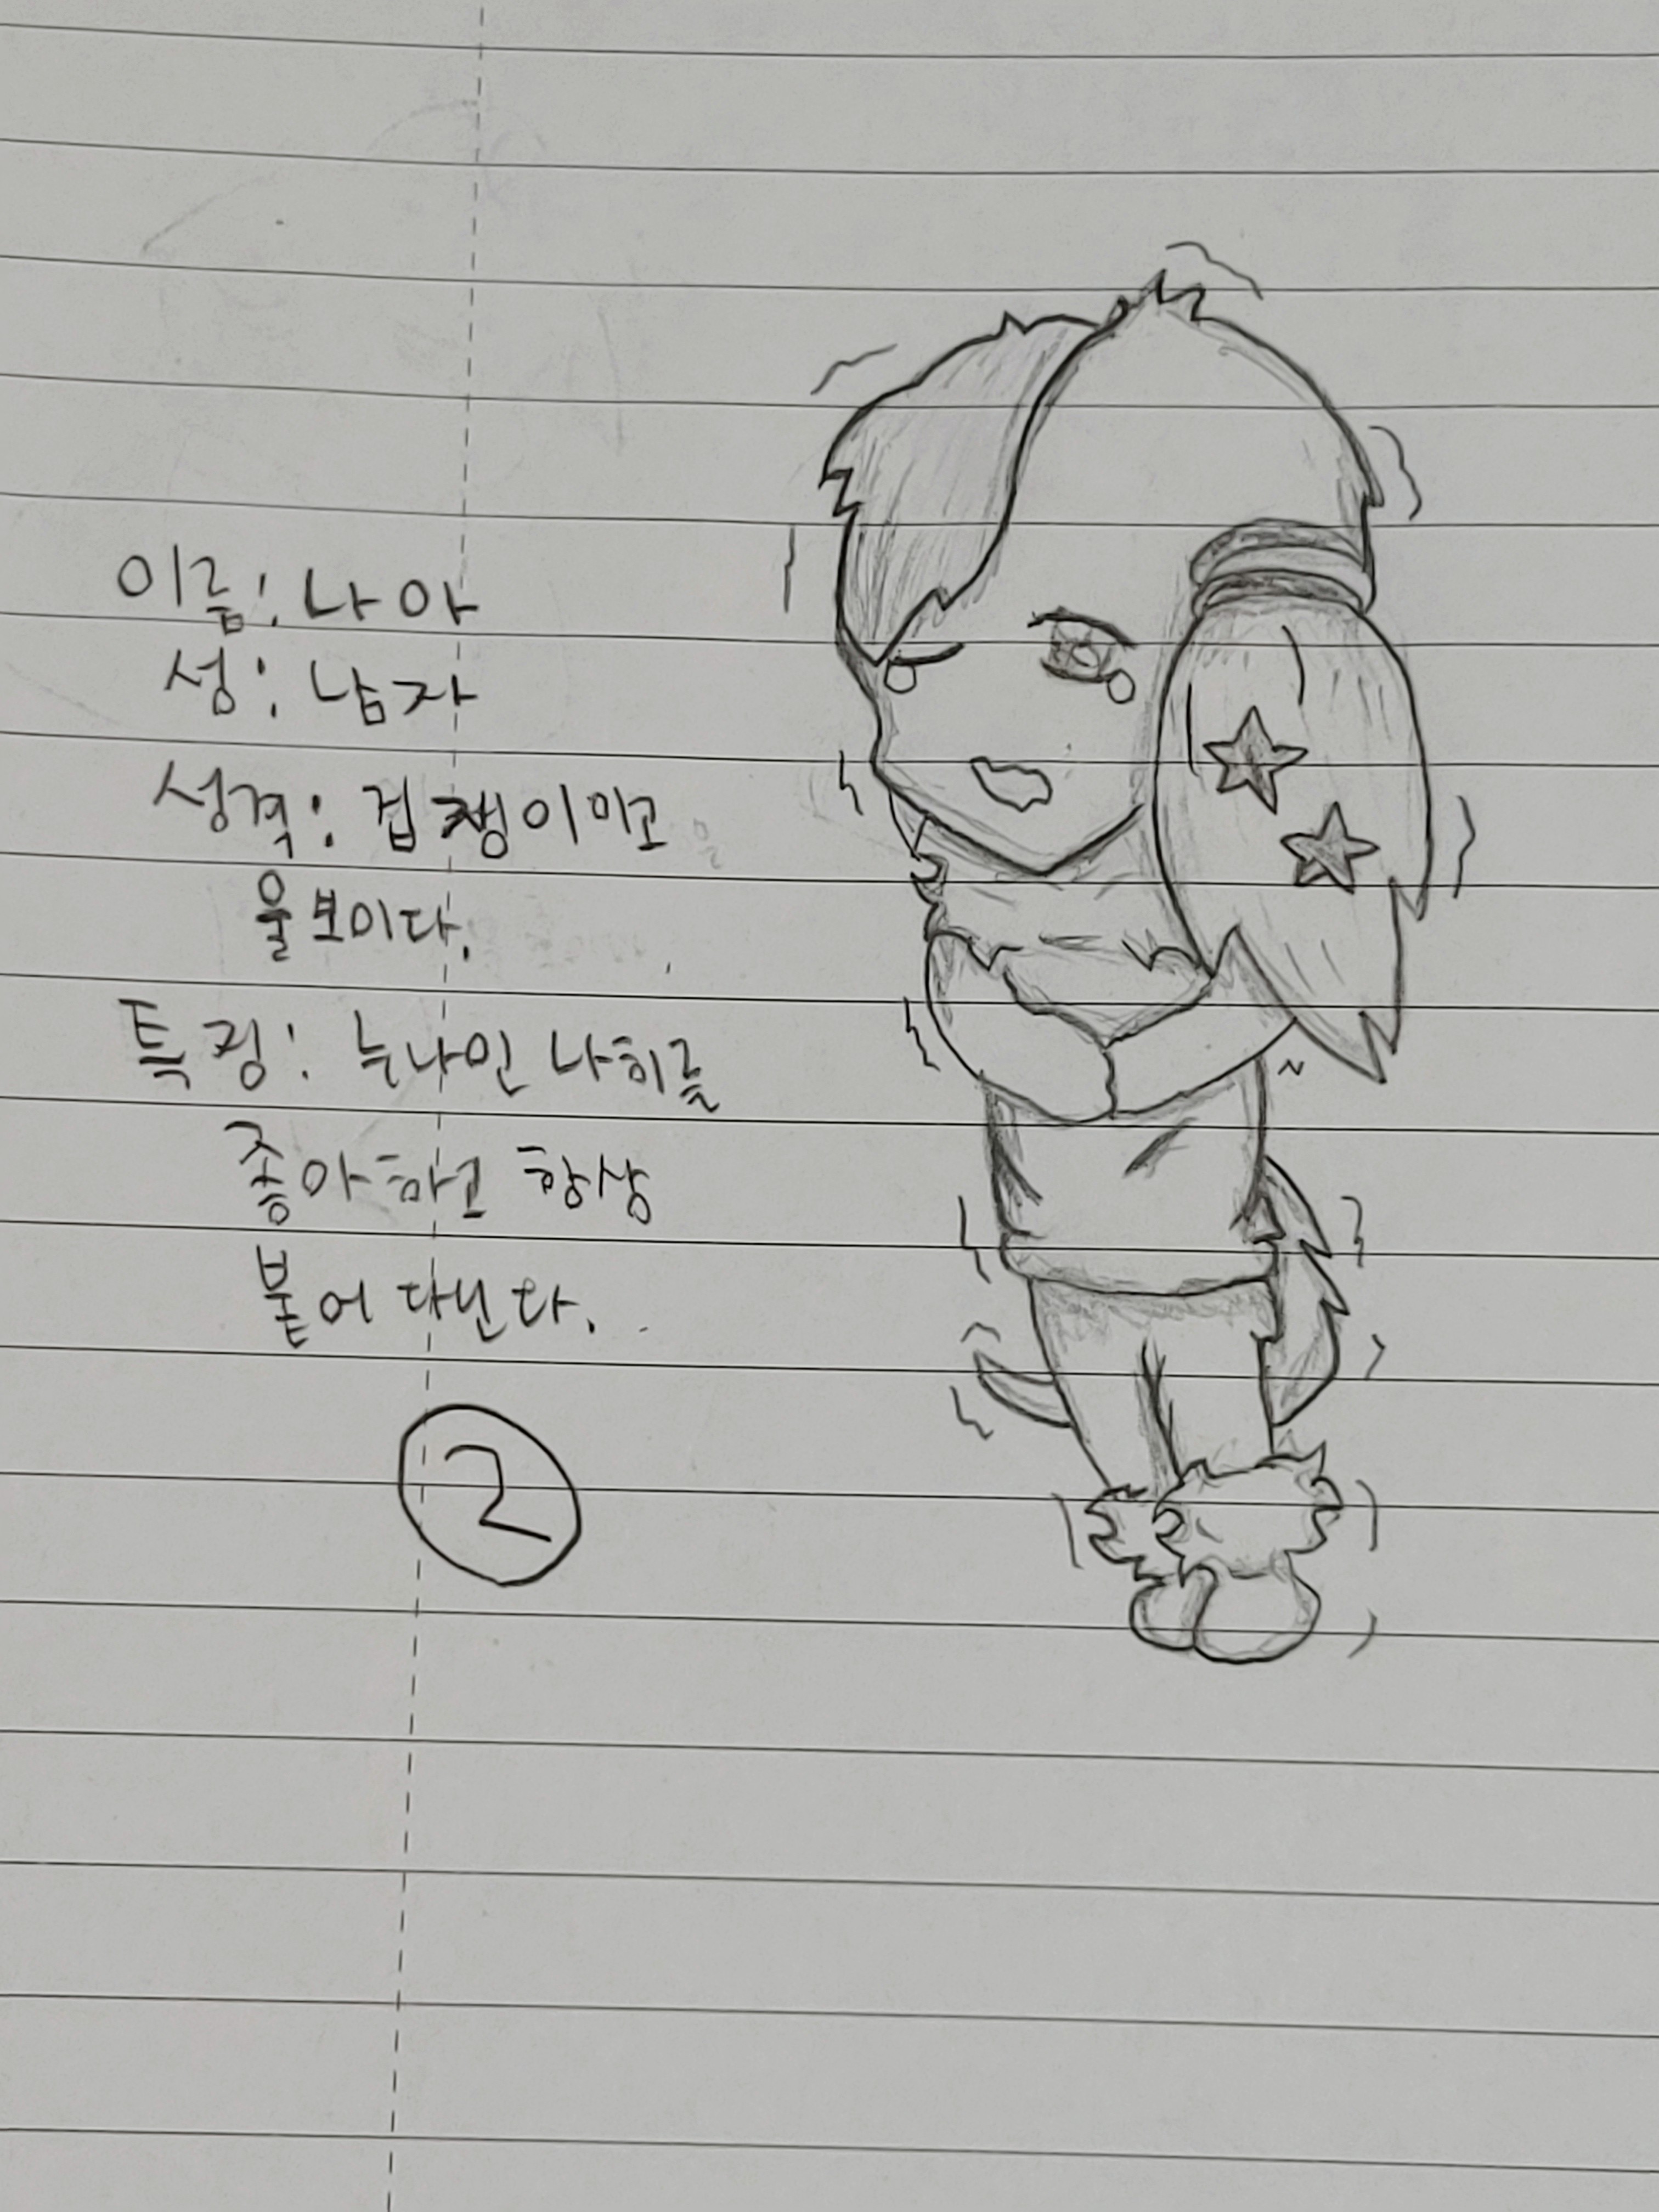 이름: 나아
성: 남자
성격: 겁쟁이이고
울보이다.
특징: 누나인 나히를
좋아하고 항상
붙어 다닌다.
2